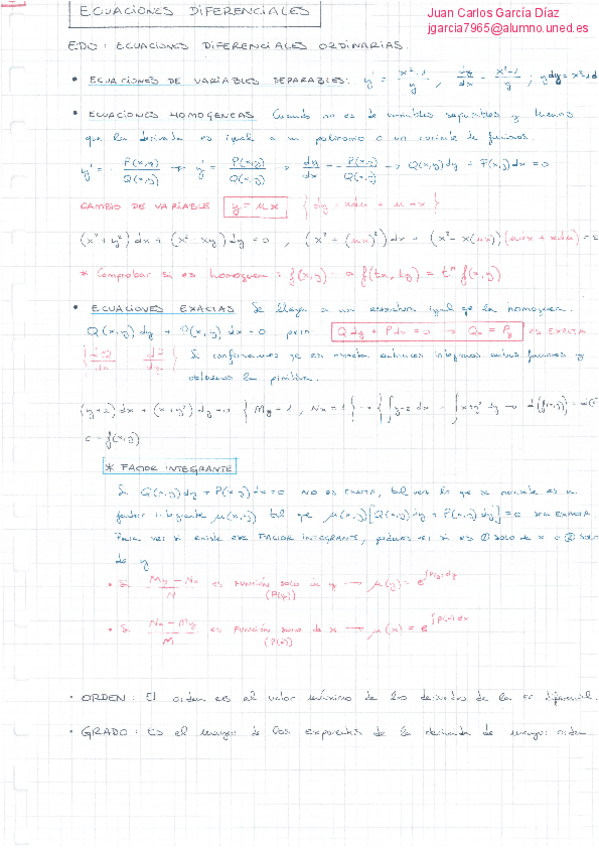 Juan Carlos García Díaz
jgarcia7965@alumno.uned.es
ECUACIONES DIFERENCIALES
EDO: ECUACIONES DIFERENCIALES ORDINARIAS.
• ECUACIONES DE VARIABLES SEPARABLES: y' = x²-1 / y , dy/dx = x²-1 / y ;
• ECUACIONES HOMOGENEAS Cuando no es de variables separables y tenemos
que la derivada es igual a un polinomio o un cociente de funciones.
y' = P(x,y)/Q(x,y) → y' = P(x,y)/Q(x,y) → dy/dx = P(x,y)/Q(x,y) → Q(x,y)dy + P(x,y)dx = 0
CAMBIO DE VARIABLE y = μx
(x²+y²)dx + (x²-xy)dy = 0 , (x²+(μx)²)dx + (x²-x(μx))
* Comprobar si es homogenea: f(x,y) → f(tx,ty) = tⁿ f(x,y)
• ECUACIONES EXACTAS Se llega a una igual que la homogenea.
Q(x,y)dy + P(x,y)dx = 0 pero Qdy + Pdx = 0 → Qx = Py es EXACTA
Si confirmamos que es exacta entonces integramos ambas funciones y
obtenemos la primitiva.
(y+2)dx + (x+y²)dy = 0 { My = 1, Nx = 1 }
c = f(x,y)
* FACTOR INTEGRANTE
Si Q(x,y)dy + P(x,y)dx = 0 NO ES EXACTA, tal vez lo que se necesite es un
factor integrante μ(x,y) tal que μ(x,y)[Q(x,y)dy + P(x,y)dy] = 0 sea EXACTA
Para ver si existe ese FACTOR INTEGRANTE, ver si es ① SOLO DE x o ② SOLO
de y
• Si My - Nx / N es FUNCIÓN SOLO de y → μ(y) = e^∫P(y)dy
(P(y))
• Si Nx - My / M es FUNCIÓN SOLO de x → μ(x) = e^∫P(x)dx
(P(x))
• ORDEN: El orden es el valor máximo de las derivadas de la ec diferencial.
• GRADO: Es el mayor de los exponentes de la derivada de mayor orden.